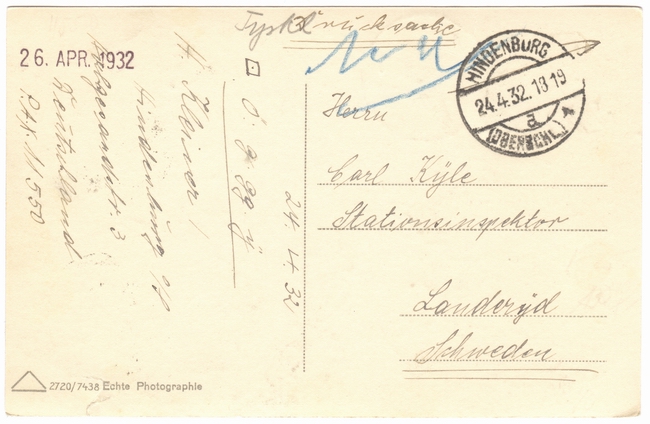 Drucksache
26. APR. 1932
H. Kleiner /
Hindenburg O/S
3
Deutschland
24. 4. 32
HINDENBURG
24.4.32.18-19
a
(OBERSCHL.) 1
Herrn
Carl Kÿle
Stationsinspektor
Landeryd
Schweden
2720/7438 Echte Photographie